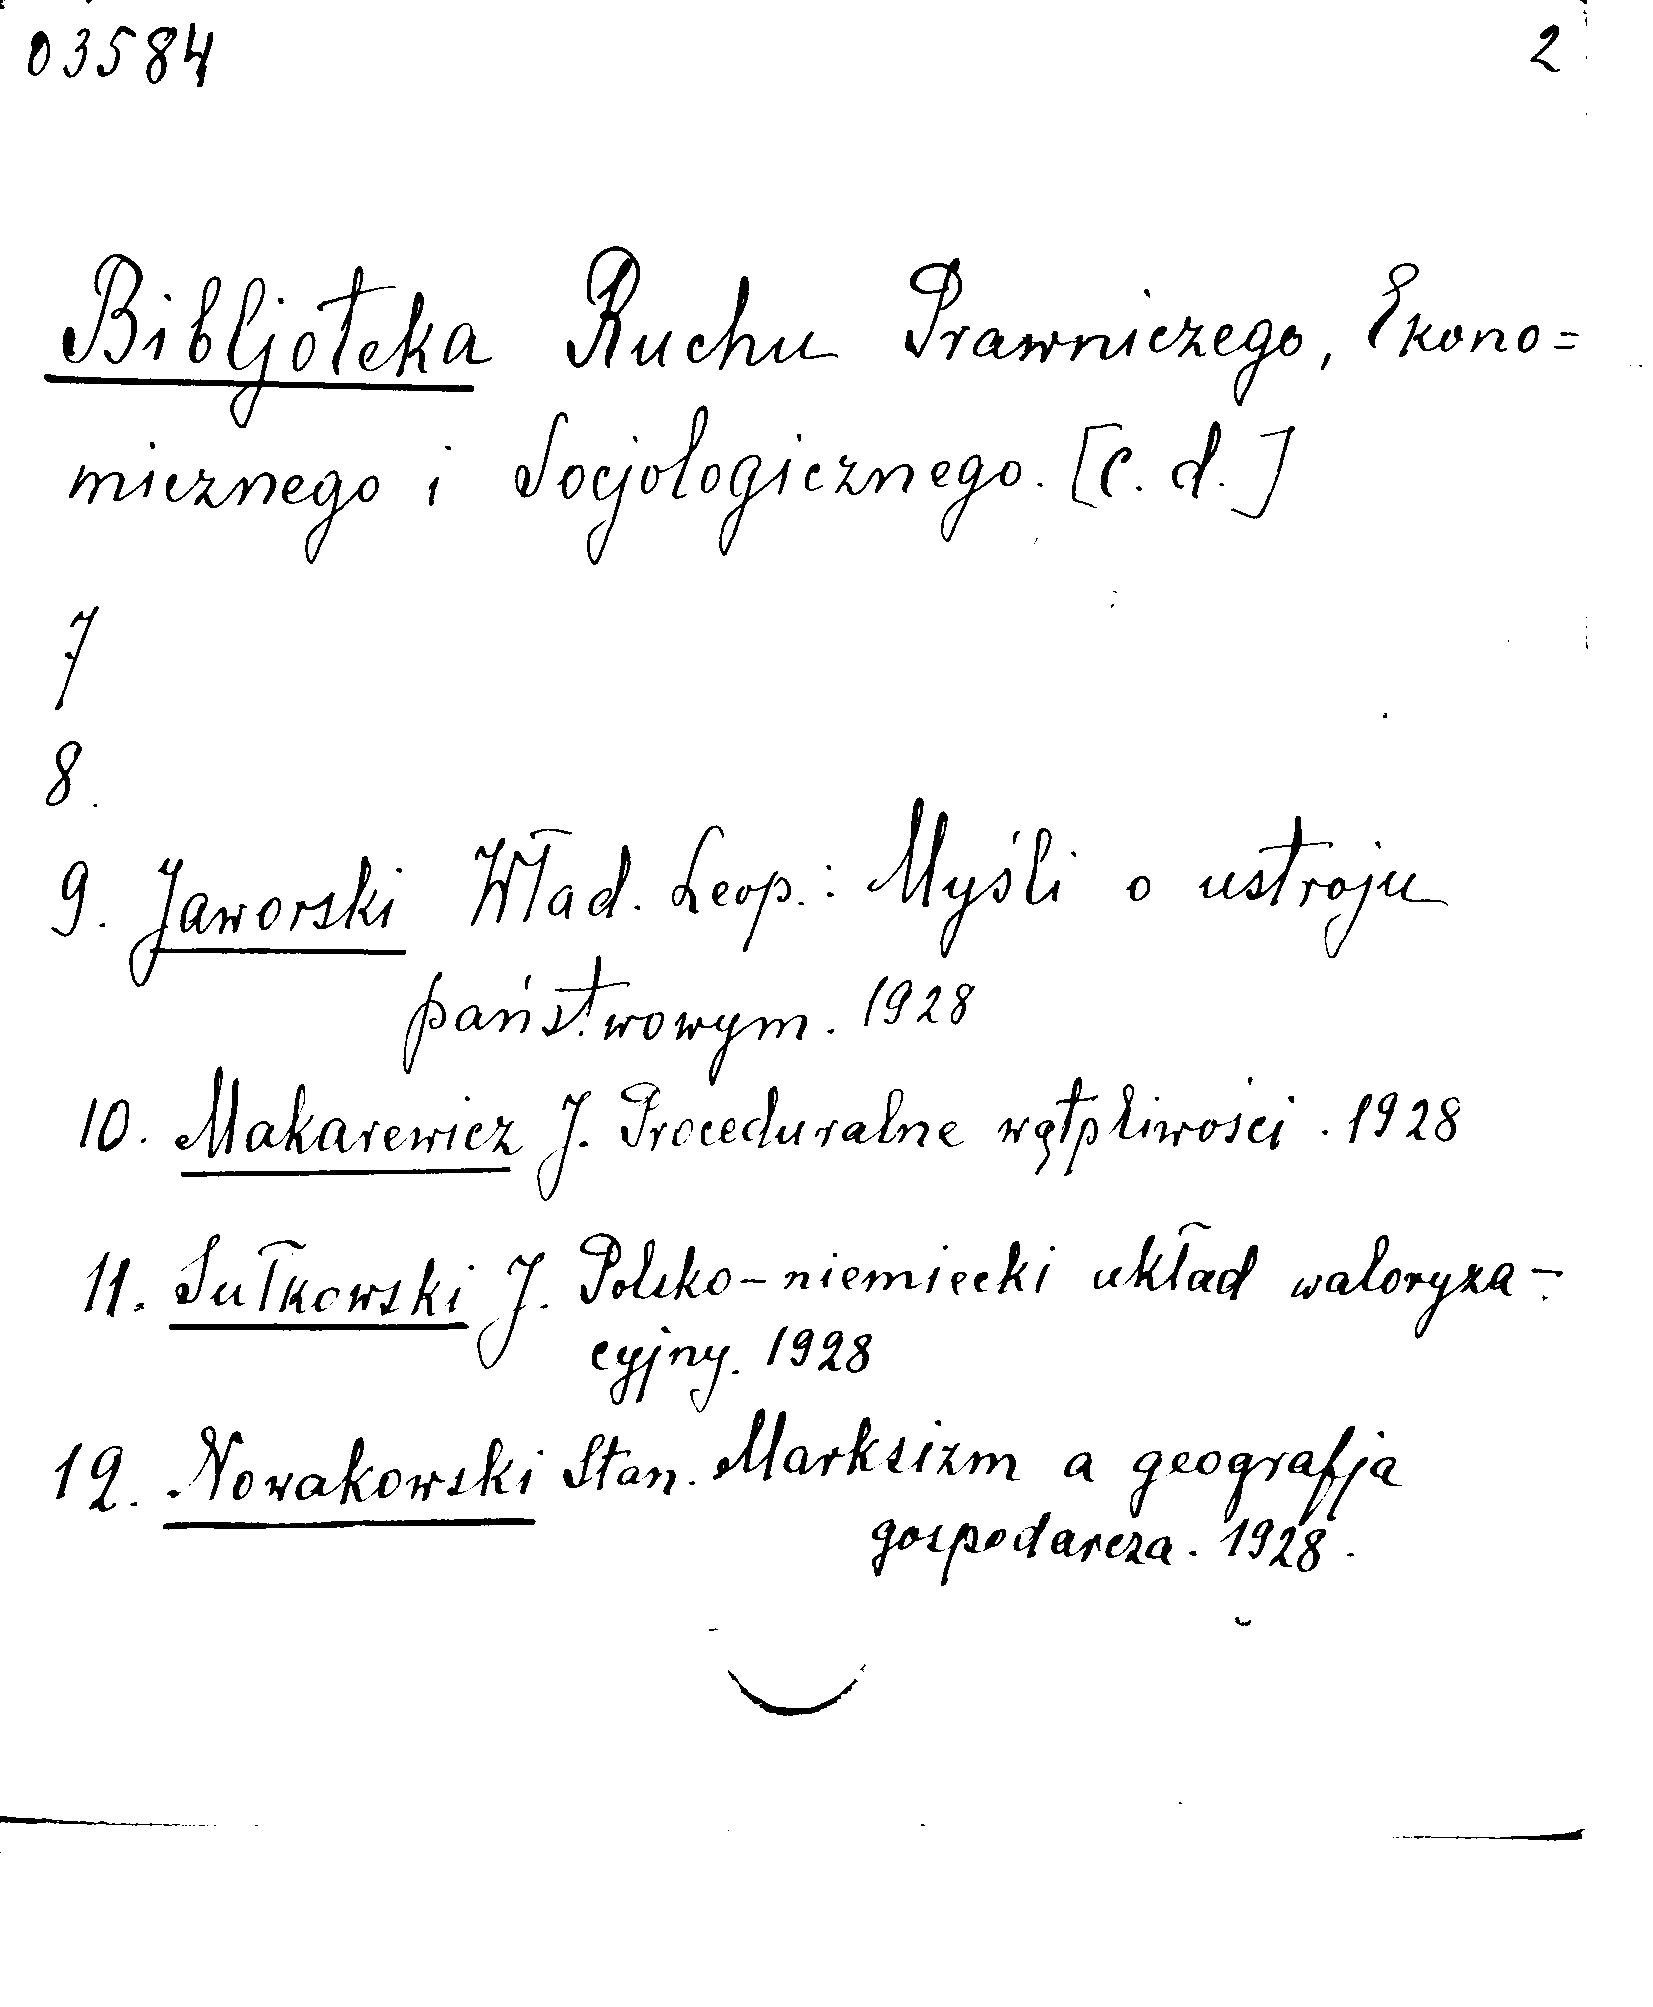 03584 2
Bibljoteka Ruchu Prawniczego, Ekono=
micznego i Socjologicznego. [c. d.]
7
8.
9. Jaworski Wład. Leop.: Myśli o ustroju
państwowym. 1928
10. Makarewicz J. Proceduralne wątpliwości. 1928
11. Sułkowski J. Polsko-niemiecki układ waloryza-
cyjny. 1928
12. Nowakowski Stan. Marksizm a geografja
gospodarcza. 1928.